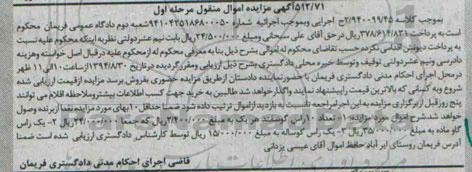 ۵۱۲/۷۱ آگهی مزایده اموال منقول مرحله اول
بموجب کلاسه ۹۴۰۰۹۹/۴۵ج/۲ اجرایی وبموجب اجرائیه شماره ۹۴۱۰۴۲۵۱۶۸۶۰۰۰۵۰ شعبه دوم دادگاه عمومی فریمان محکوم
است به پرداخت ۳۷۸/۶۱۴/۸۳۱ریال درحق آقای علی سبحانی ومبلغ ۲۴/۵۰۰/۰۰۰ریال بابت نیم عشردولتی نظریه اینکه محکوم علیه نسبت
به پرداخت دیونش اقدامی نکرده حسب تقاضای محکوم له اموالی بشرح ذیل بنا به معرفی محکوم له ازمحکوم علیه درقبال اصل خواسته وهزینه
دادرسی ونیم عشردولتی توقیف وتوسط خبره محلی دادگستری بشرح ذیل ارزیابی ومقررگردیده درتاریخ ۱۳۹۴/۸/۳۰ازساعت ۱۰الی ۱۱ ظهر
درمحل اجرای احکام مدنی دادگستری فریمان با حضورنماینده دادستان ازطریق مزایده حضوری بفروش برسد مزایده ازقیمت ارزیابی شده
شروع وبه کسانی که بالاترین قیمت راپیشنهاد نمایند واگذار خواهدشد طالبین به خرید جهت کسب اطلاعات بیشترومشاهده اقلام می توانند
پنج روزقبل ازبرگزاری مزایده به این اجرا مراجعه تانسبت به بازدید ازاموال ترتیب داده شود ضمنا حداقل ۱۰ بهای مورد مزایده نقدا ازبرنده وصول
خواهد شدشرح اموال مورد مزایده: ۱- تعداد ۱۰ راس گوسفند هر یک به مبلغ ۳/۴۰۰/۰۰۰ ریال که جمعا ۳۴/۰۰۰/۰۰۰ ریال ۲- یک راس
گاو ماده به مبلغ ۳۵/۰۰۰/۰۰۰ریال ۳- یک راس گوساله به مبلغ ۱۵/۰۰۰/۰۰۰ ریال توسط کارشناس دادگستری ارزیابی شده است ضمنا
آدرس فریمان روستای ابر اباد حافظ اموال آقای عیسی یزدانی
قاضی اجرای احکام مدنی دادگستری فریمان